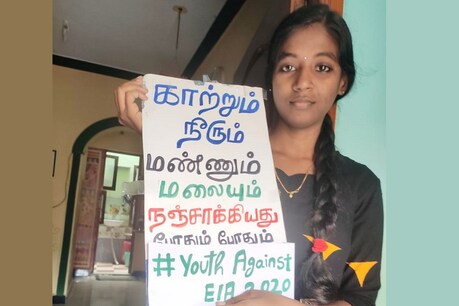 காற்றும்
நீரும்
மண்ணும்
மலையும்
நஞ்சாக்கியது
போதும் போதும்
#Youth Against
EIA 2020